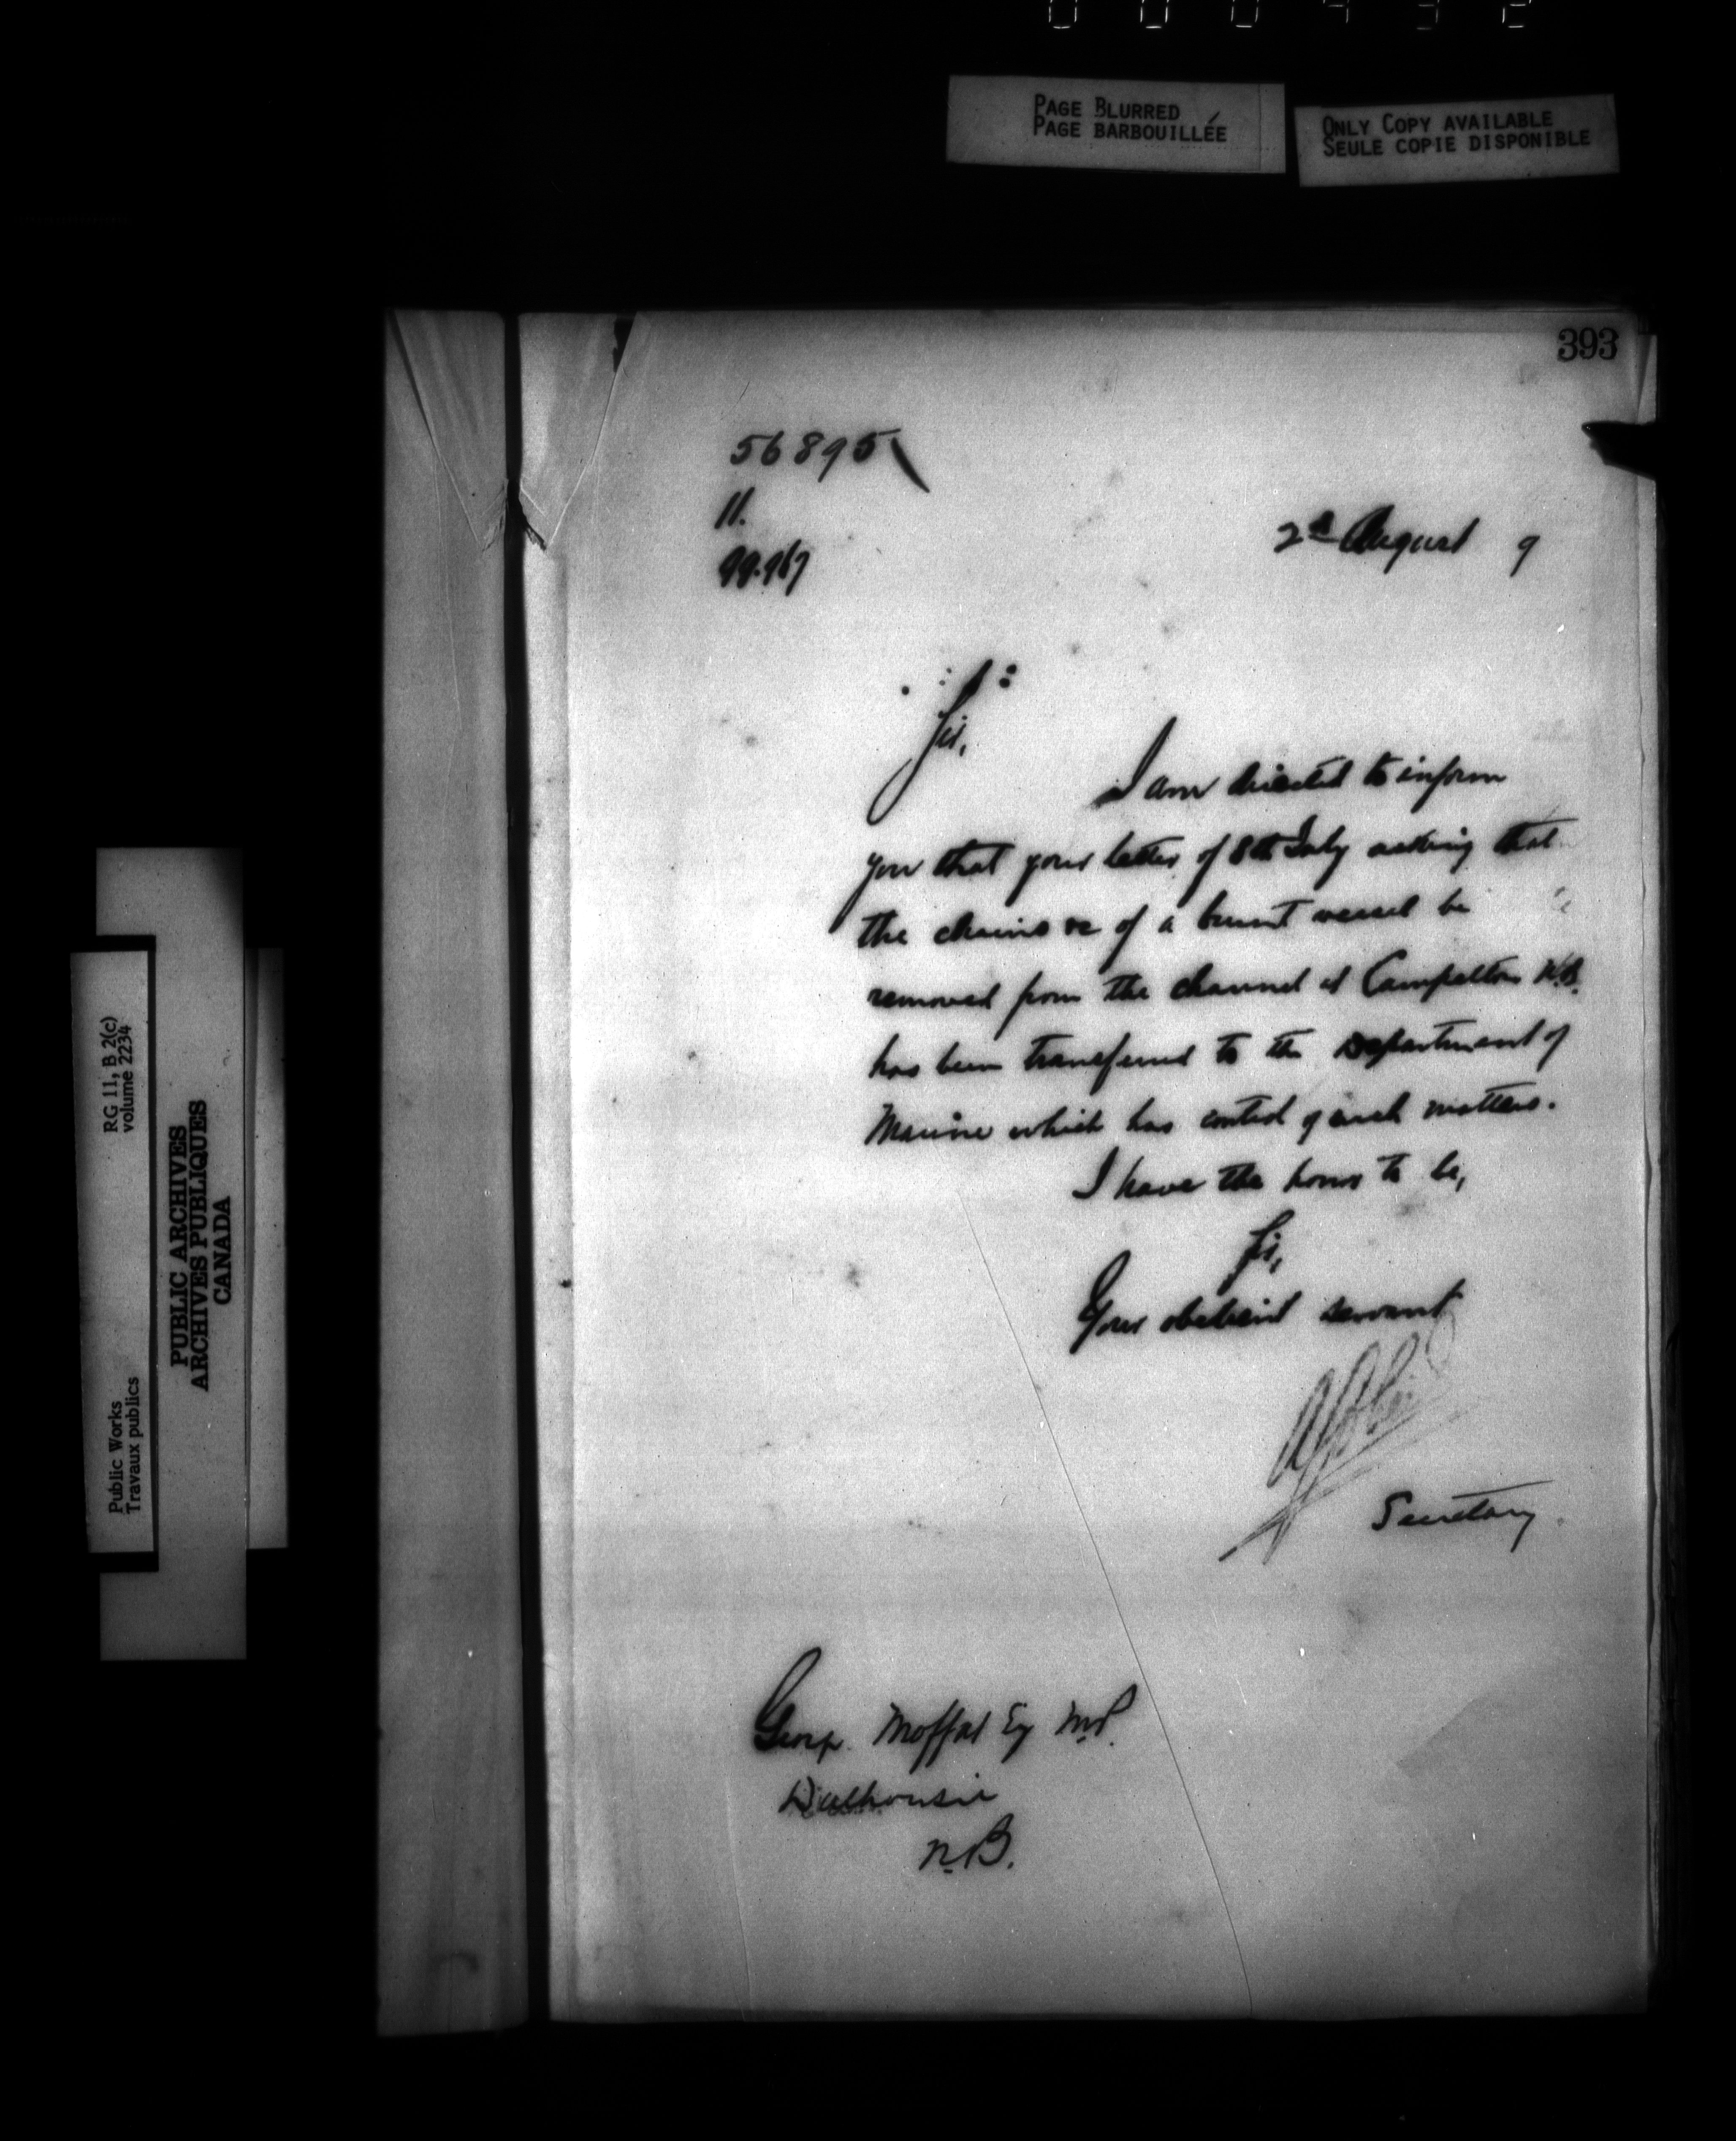 PAGE BLURRED
PAGE BARBOUILLÉE
ONLY COPY AVAILABLE
SEULE COPIE DISPONIBLE
393
56895
11.
2d August 9
Sir,
I am directed to inform
you that your letter of 8th July asking that
the chains &c of a burnt vessel be
removed from the channel at Campbelton N.B.
has been transferred to the Department of
Marine which has control of such matters.
I have the honor to be,
Sir,
Your obedient servant
Secretary
George Moffat Esq M.P.
Dalhousie
N.B.
RG 11, B 2(c)
volume 2234
Public Works
Travaux publics
PUBLIC ARCHIVES
ARCHIVES PUBLIQUES
CANADA